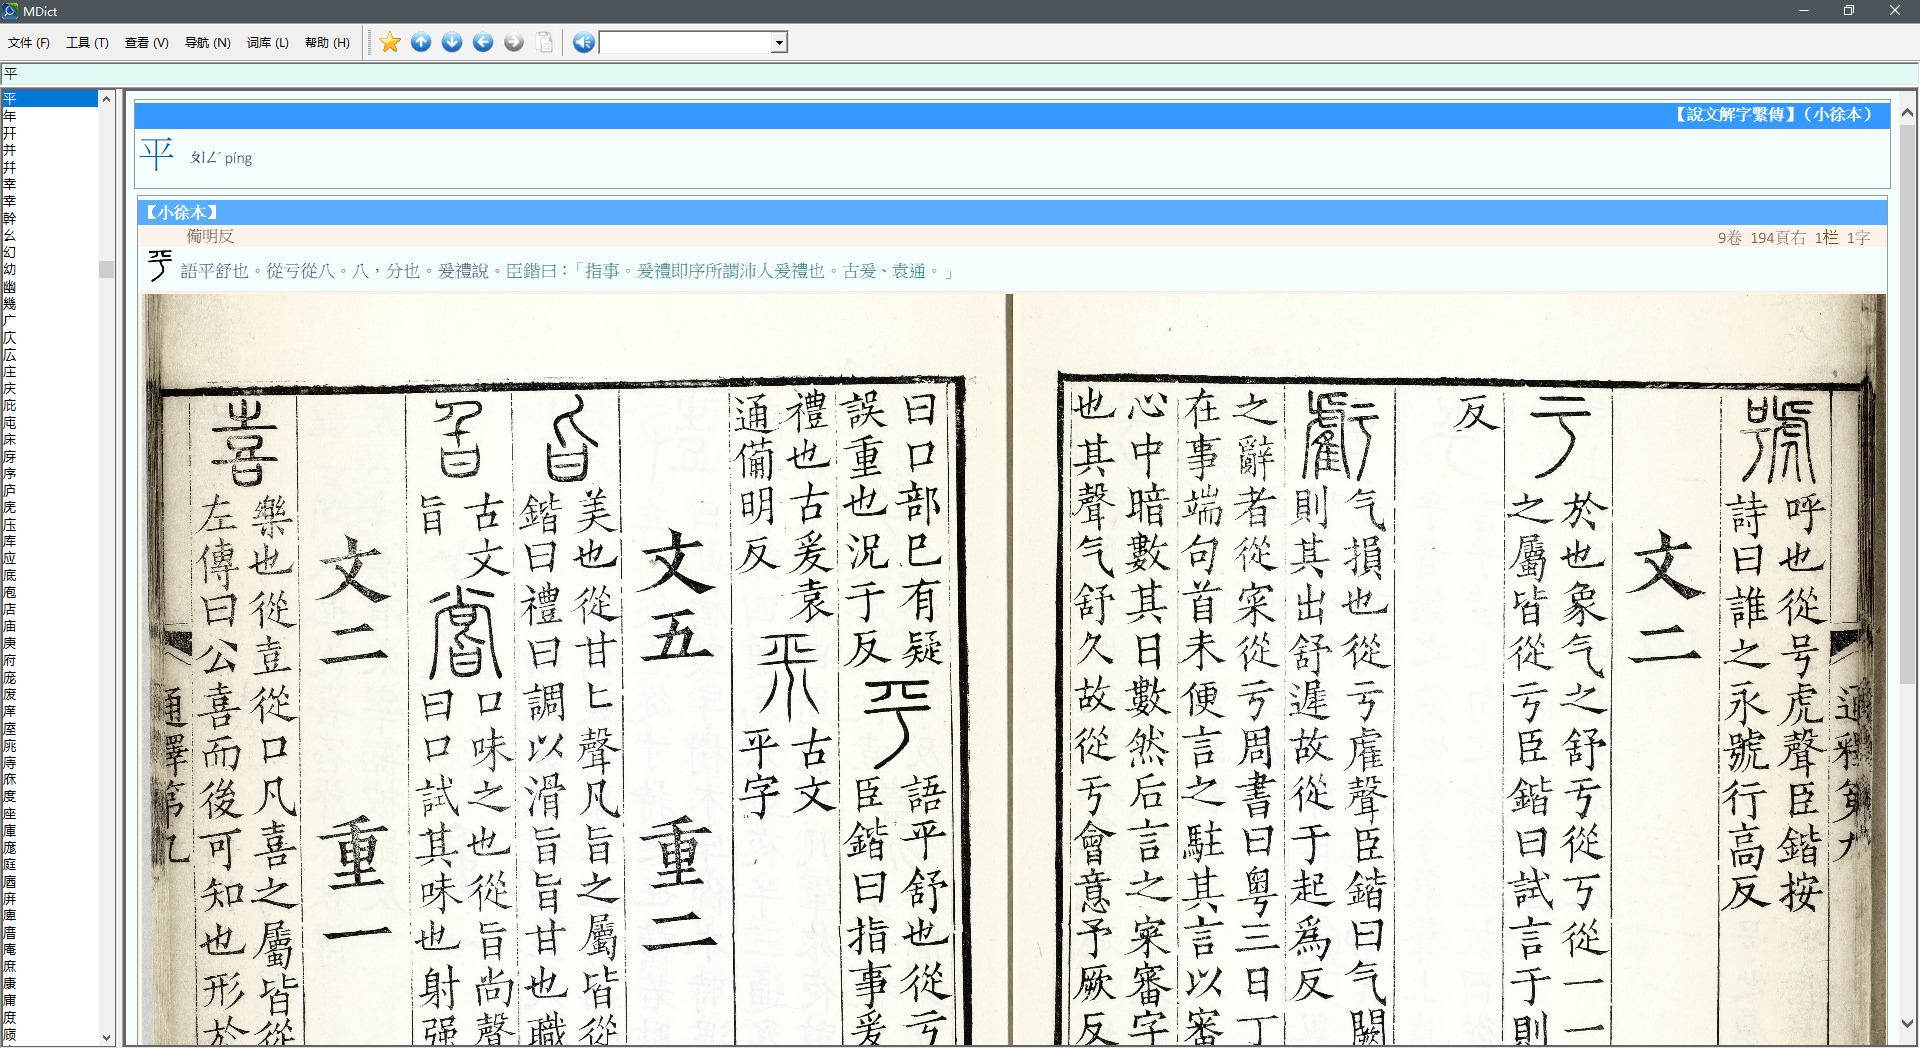 MDict
文件 (F) 工具 (T) 查看 (V) 导航 (N) 词库 (L) 帮助 (H)
平
平
年
幵
并
幷
幸
幸
幹
幺
幻
幼
幽
幾
广
庂
広
庄
庆
庇
庉
床
庌
序
庐
庑
库
应
底
庖
店
庙
庚
府
庞
废
庠
庢
庣
庤
庥
度
座
庫
庭
庮
庰
庳
庵
庶
康
庸
庹
庼
【說文解字繫傳】（小徐本）
平 ㄆㄧㄥˊ píng
【小徐本】
備明反 9卷 194頁右 1栏 1字
語平舒也。從亏從八。八，分也。爰禮說。臣鍇曰：「指事。爰禮即序所謂沛人爰禮也。古爰、袁通。」
通釋第九
號 呼也從号虎聲臣鍇按
詩曰誰之永號行高反
文二
亏 於也象气之舒亏從丂從一一
之屬皆從亏臣鍇曰試言于則
反
虧 气損也從亏雐聲臣鍇曰气闕
則其出舒遲故從于起爲反
之辭者從宷從亏周書曰粤三日丁
在事端句首未便言之駐其言以審
心中暗數其日數然后言之宷審字
也其聲气舒久故從亏會意予厥反
曰口部已有疑
誤重也況于反 平 語平舒也從亏
臣鍇曰指事爰
禮也古爰袁
通備明反
古文
平字
文五 重二
旨 美也從甘匕聲凡旨之屬皆從
鍇曰禮曰調以滑旨旨甘也職
古文
旨
嘗 口味之也從旨尚聲
曰口試其味也射强
文二 重一
喜 樂也從壴從口凡喜之屬皆從
左傳曰公喜而後可知也形於
通釋第九